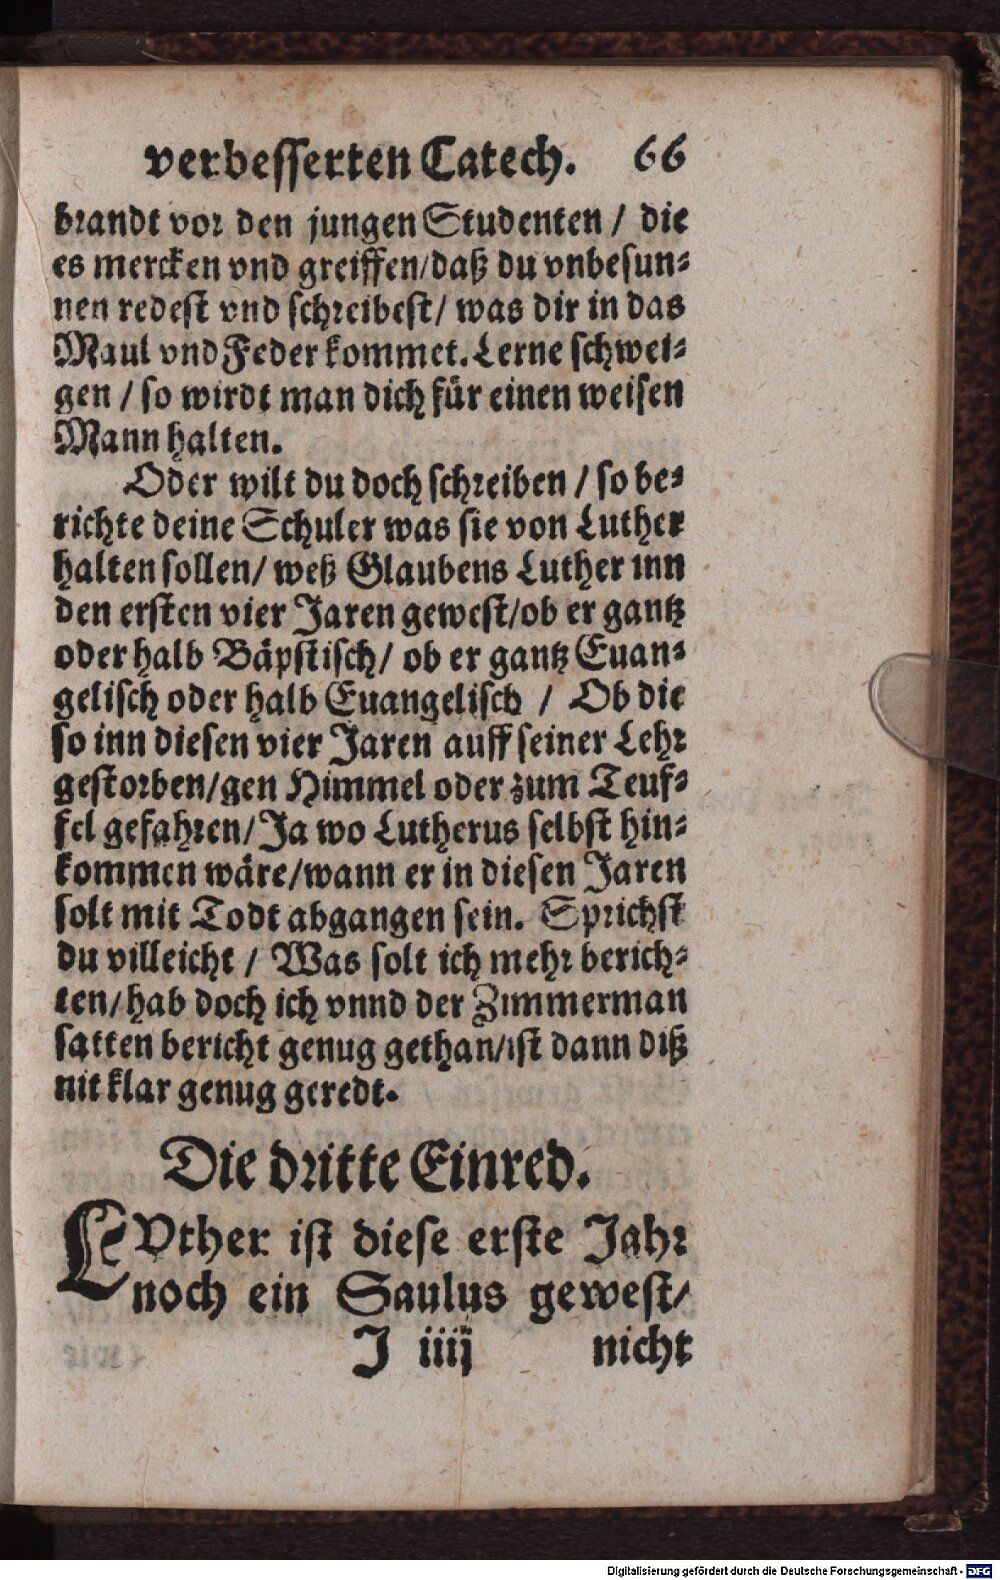 verbesserten Catech. 66
brandt vor den jungen Studenten / die
es mercken vnd greiffen/daß du vnbesun⸗
nen redest vnd schreibest/ was dir in das
Maul vnd Feder kommet. Lerne schwei⸗
gen / so wirdt man dich für einen weisen
Mann halten.
Oder wilt du doch schreiben / so be⸗
richte deine Schuler was sie von Luther
halten sollen/ weß Glaubens Luther inn
den ersten vier Jaren gewest/ob er gantz
oder halb Bäpstisch/ ob er gantz Euan⸗
gelisch oder halb Euangelisch / Ob die
so inn diesen vier Jaren auff seiner Lehr
gestorben/gen Himmel oder zum Teuf⸗
fel gefahren/Ja wo Lutherus selbst hin⸗
kommen wäre/wann er in diesen Jaren
solt mit Todt abgangen sein. Sprichst
du villeicht / Was solt ich mehr berich⸗
ten/hab doch ich vnnd der Zimmerman
satten bericht genug gethan/ist dann diß
nit klar genug geredt.
Die dritte Einred.
LVther ist diese erste Jahr
noch ein Saulus gewest/
J iiij nicht
Digitalisierung gefördert durch die Deutsche Forschungsgemeinschaft - DFG